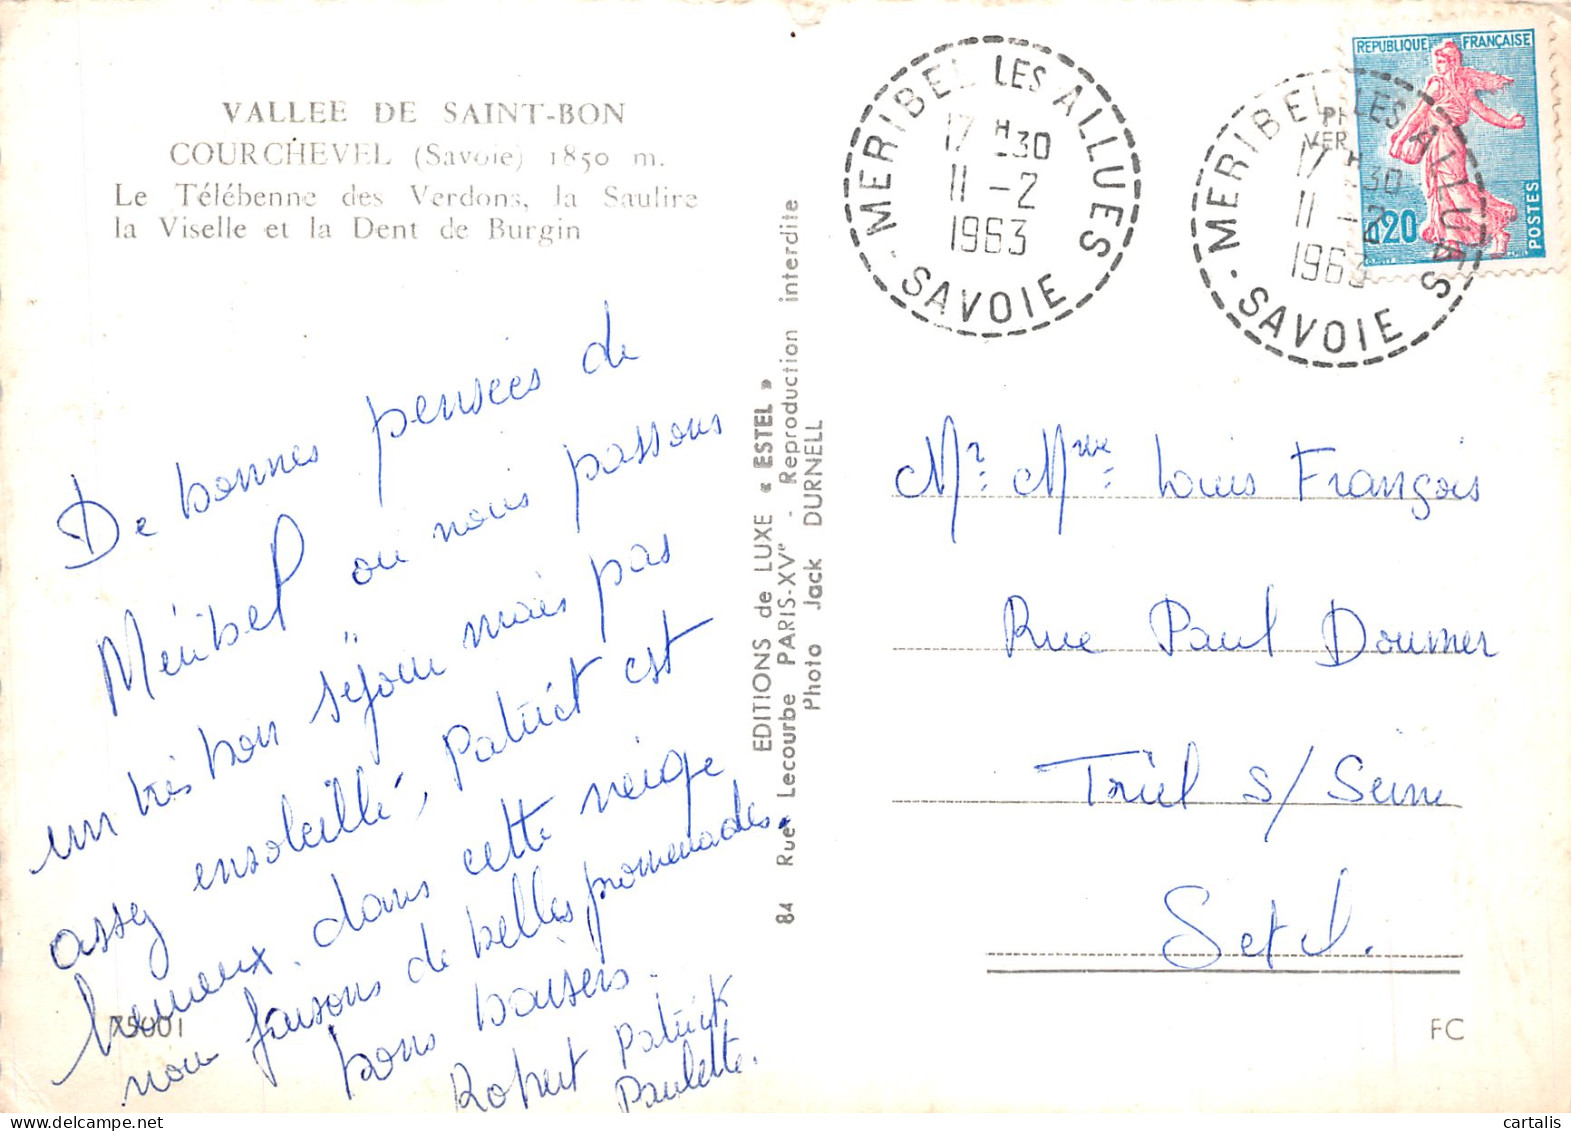 VALLEE DE SAINT-BON
COURCHEVEL (Savoie) 1850 m.
Le Télébenne des Verdons, la Saulire
la Viselle et la Dent de Burgin
De bonnes pensées de
Méribel ou nous passons
un très bon séjour mais pas
assez ensoleillé, Patrick est
heureux dans cette neige
nous faisons de belles promenades.
bons baisers.
Robert Patrick
Paulette.
75001
EDITIONS de LUXE « ESTEL »
84 Rue Lecourbe PARIS-XVe - Reproduction interdite
Photo Jack DURNELL
MERIBEL LES ALLUES
17 H 30
11 - 2
1963
- SAVOIE
MERIBEL LES ALLUES
17 H 30
11 - 2
1963
- SAVOIE
REPUBLIQUE FRANÇAISE
0,20
POSTES
Mr. Mme Louis François
Rue Paul Doumer
Triel s/ Seine
Set O.
FC
cartalis